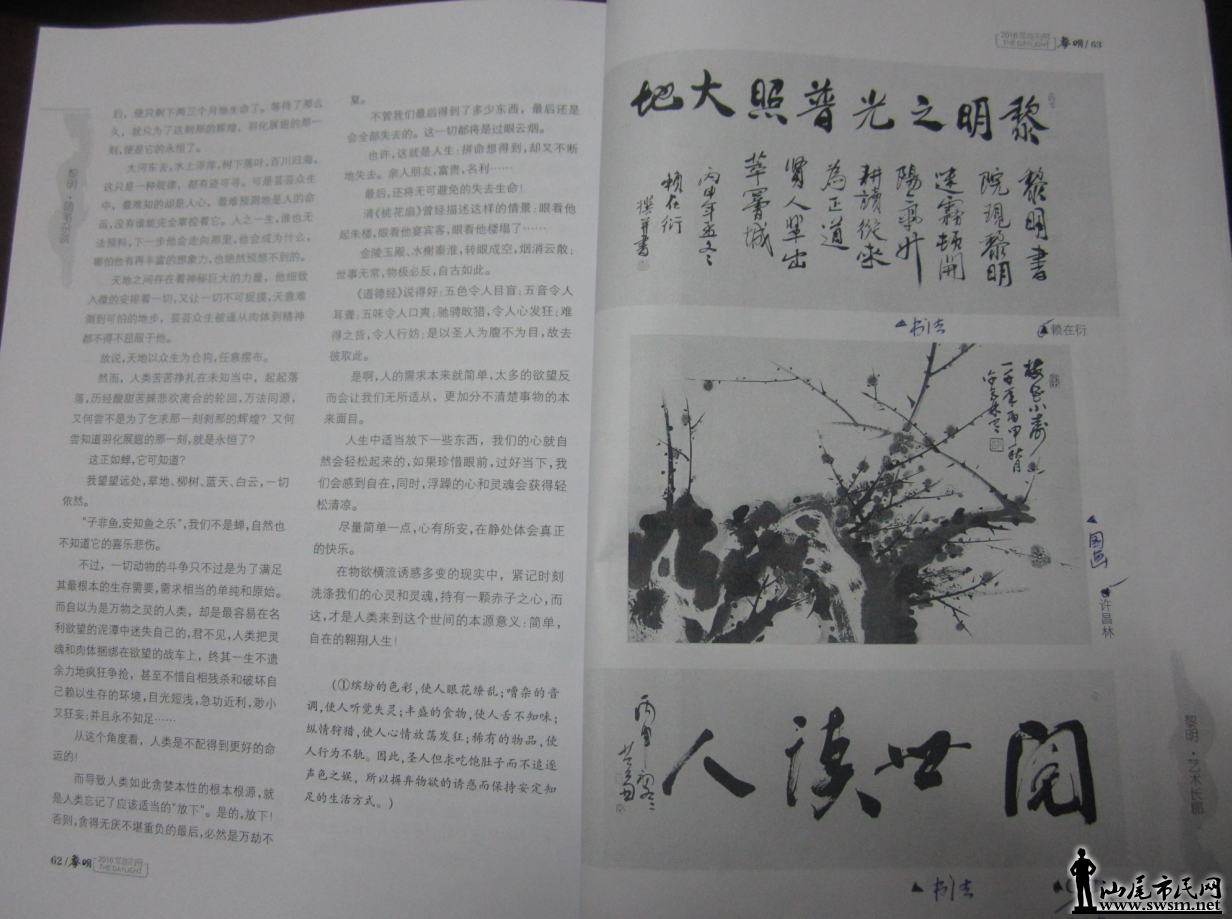 后，便只剩下两三个月地生命了。等待了那么
久，就只为了这刹那的辉煌，羽化展翅的那一
刻，便是它的永恒了。
大河东去，水上浮萍，树下落叶，百川归海，
这只是一种规律，都有迹可寻。可是芸芸众生
中，最难知的却是人心，最难预测地是人的命
运，没有谁能完全掌控着它。人之一生，谁也无
法预料，下一步他会走向那里，他会成为什么，
哪怕他有再丰富的想象力，也绝然预想不到的。
天地之间存在着神秘巨大的力量，他细致
入微的安排着一切，又让一切不可捉摸，天意难
测到可怕的地步，芸芸众生被逼从肉体到精神
都不得不屈服于他。
故说，天地以众生为仓狗，任意摆布。
然而，人类苦苦挣扎在未知当中，起起落
落，历经酸甜苦辣悲欢离合的轮回，万法同源，
又何尝不是为了乞求那一刻刹那的辉煌？又何
尝知道羽化展翅的那一刻，就是永恒了？
这正如蝉，它可知道？
我望望远处，草地、柳树、蓝天、白云，一切
依然。
“子非鱼，安知鱼之乐”，我们不是蝉，自然也
不知道它的喜乐悲伤。
不过，一切动物的斗争只不过是为了满足
其最根本的生存需要，需求相当的单纯和原始。
而自以为是万物之灵的人类，却是最容易在名
利欲望的泥潭中迷失自己的，君不见，人类把灵
魂和肉体捆绑在欲望的战车上，终其一生不遗
余力地疯狂争抢，甚至不惜自相残杀和破坏自
己赖以生存的环境，目光短浅，急功近利，渺小
又狂妄；并且永不知足……
从这个角度看，人类是不配得到更好的命
运的！
而导致人类如此贪婪本性的根本根源，就
是人类忘记了应该适当的“放下”。是的，放下！
否则，贪得无厌不堪重负的最后，必然是万劫不
62/黎明
2016年创刊号
THE DAYLIGHT
复。
不管我们最后得到了多少东西，最后还是
会全部失去的。这一切都将是过眼云烟。
也许，这就是人生：拼命想得到，却又不断
地失去。亲人朋友，富贵，名利……
最后，还将无可避免的失去生命！
清《桃花扇》曾经描述这样的情景：眼看他
起朱楼，眼看他宴宾客，眼看他楼塌了……
金陵玉殿、水榭秦淮，转眼成空，烟消云散；
世事无常，物极必反，自古如此。
《道德经》说得好：五色令人目盲；五音令人
耳聋；五味令人口爽；驰骋畋猎，令人心发狂；难
得之货，令人行妨；是以圣人为腹不为目，故去
彼取此。
是啊，人的需求本来就简单，太多的欲望反
而会让我们无所适从，更加分不清楚事物的本
来面目。
人生中适当放下一些东西，我们的心就自
然会轻松起来的，如果珍惜眼前，过好当下，我
们会感到自在，同时，浮躁的心和灵魂会获得轻
松清凉。
尽量简单一点，心有所安，在静处体会真正
的快乐。
在物欲横流诱惑多变的现实中，紧记时刻
洗涤我们的心灵和灵魂，持有一颗赤子之心，而
这，才是人类来到这个世间的本源意义：简单，
自在的翱翔人生！
(①缤纷的色彩，使人眼花缭乱；嘈杂的音
调，使人听觉失灵；丰盛的食物，使人舌不知味；
纵情狩猎，使人心情放荡发狂；稀有的物品，使
人行为不轨。因此，圣人但求吃饱肚子而不追逐
声色之娱，所以摒弃物欲的诱惑而保持安定知
足的生活方式。)
2016年创刊号
THE DAYLIGHT
黎明/63
黎明之光普照大地
黎明書
院現黎明
迷霧頓開
陽氣升
耕讀從来
為正道
賢人輩出
萃曾城
丙申年孟冬
賴在衍
撰并書
▲书法
赖在衍
丙申
▲国画
许昌林
閱世讀人
丙申
▲书法
黎明·艺术长廊
汕尾市民网
www.swsm.net